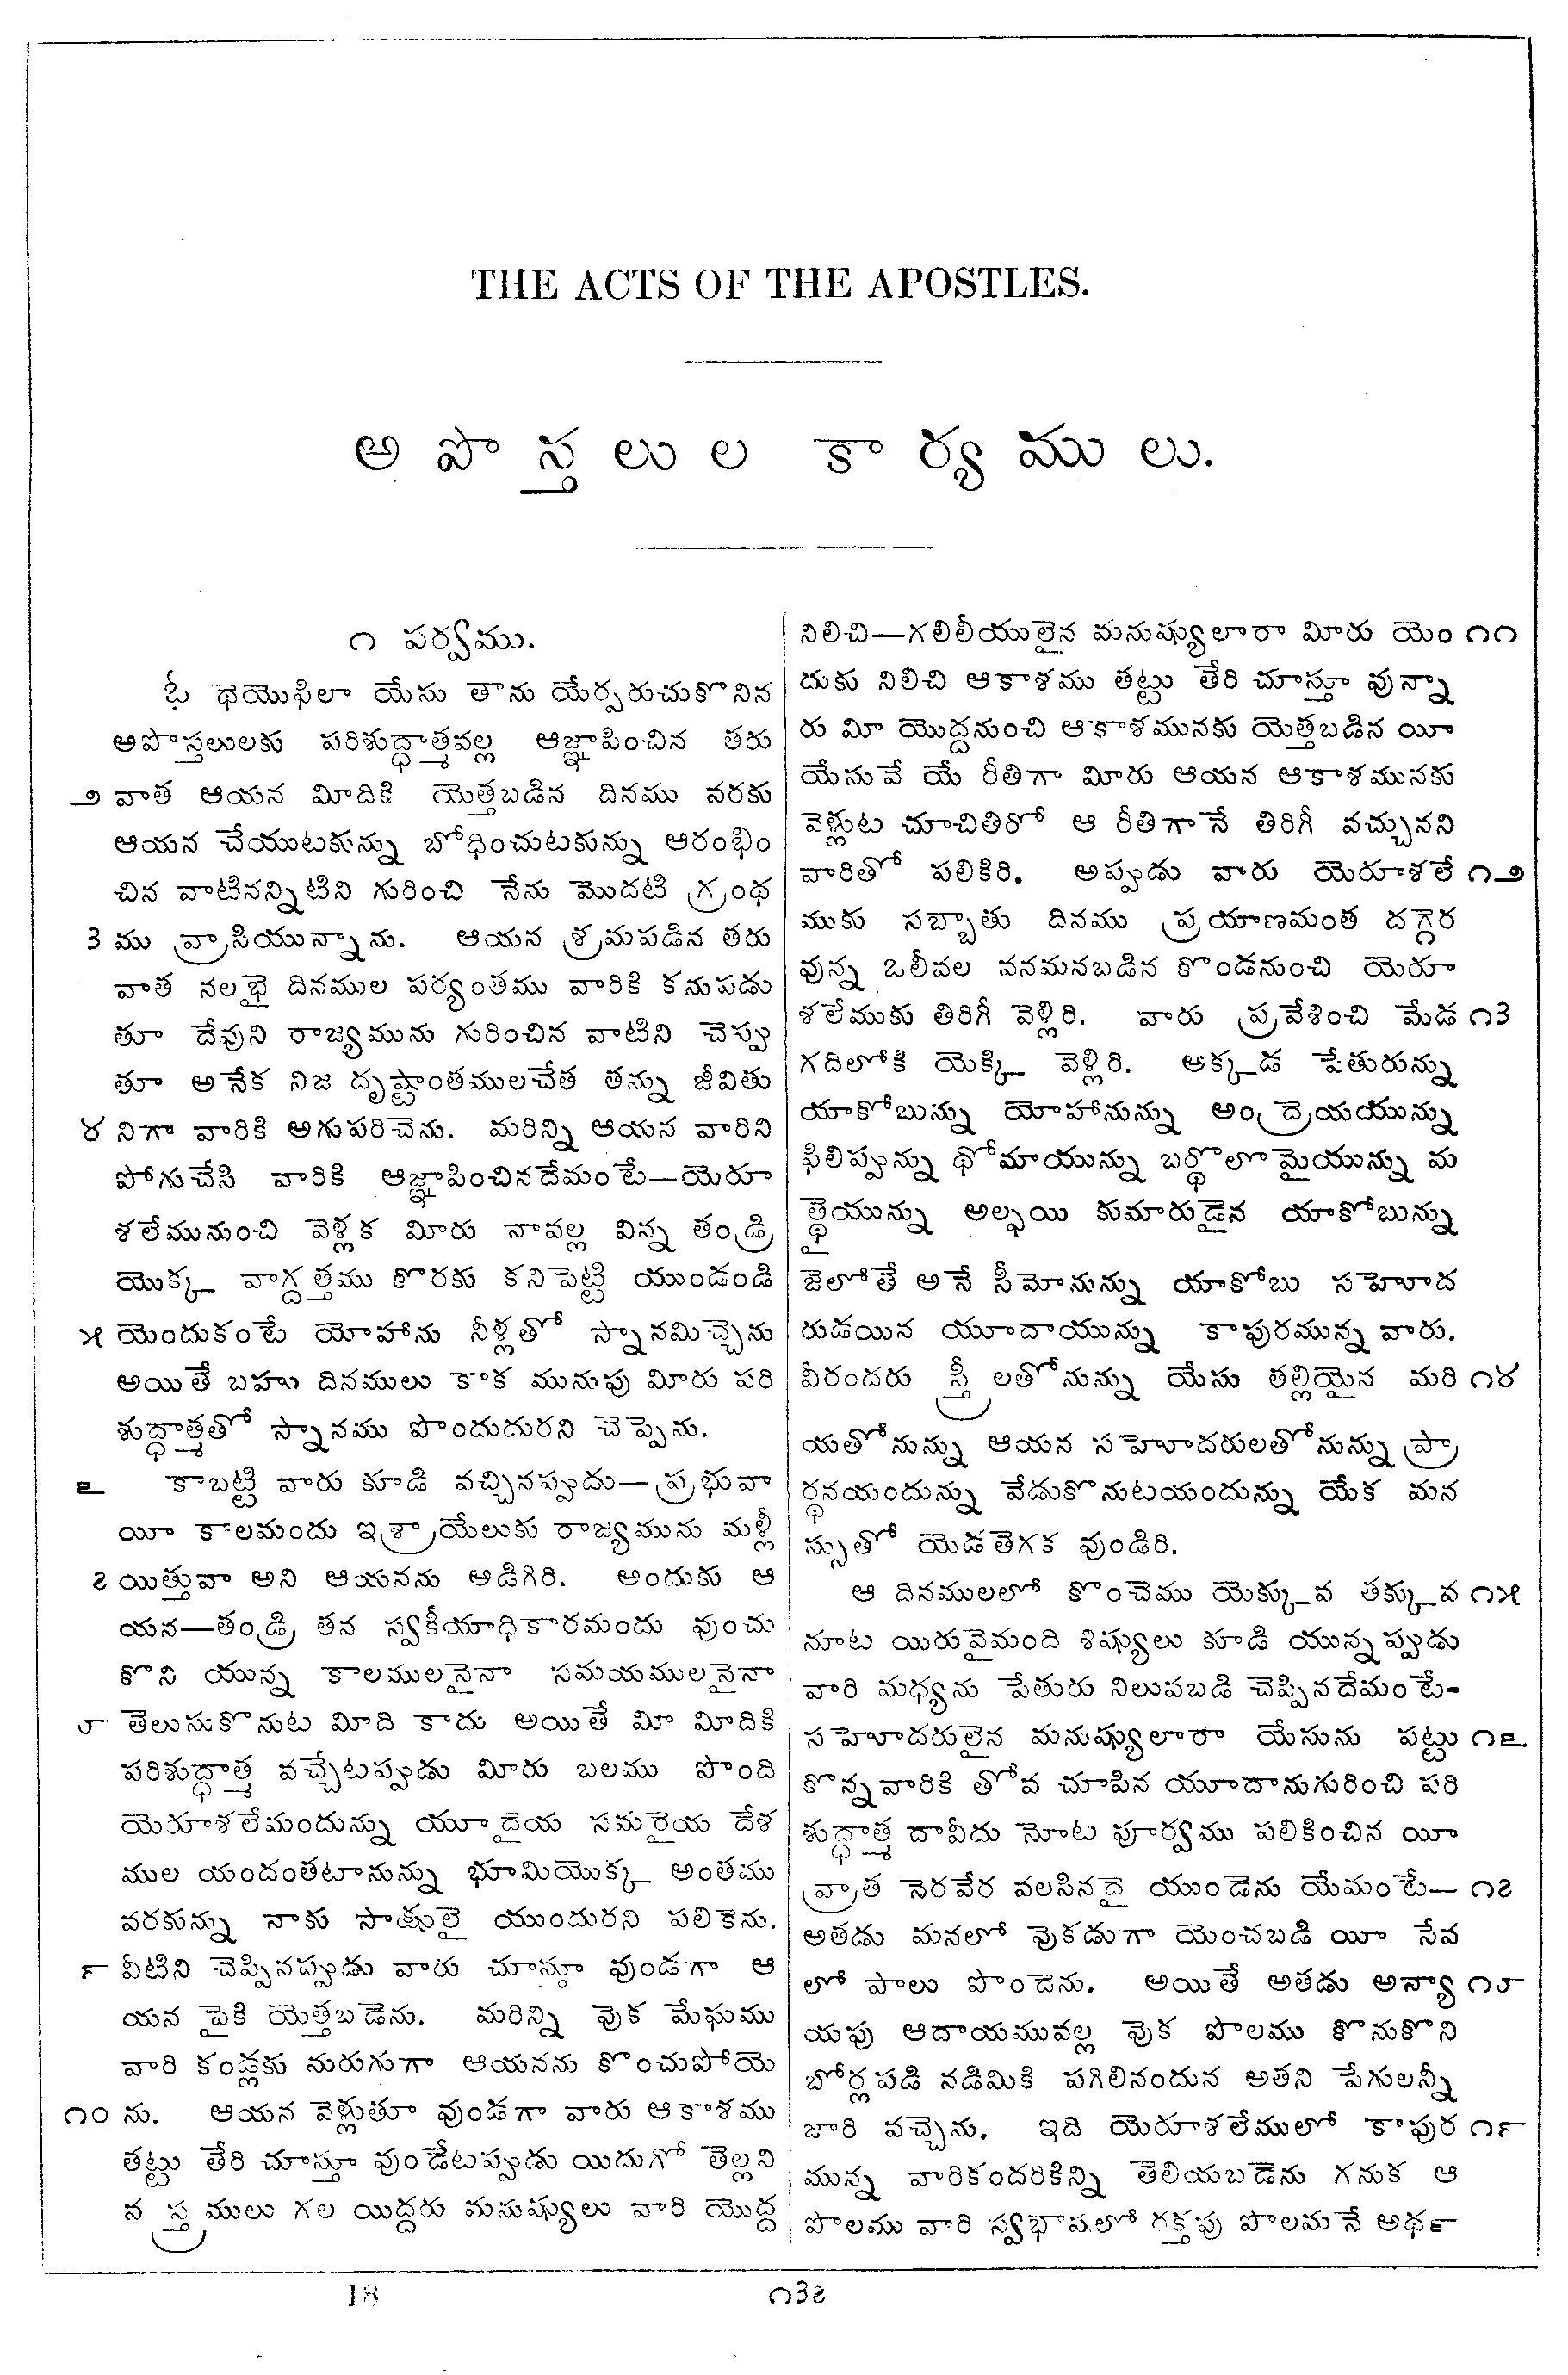 THE ACTS OF THE APOSTLES.
అపొస్తలుల కార్యములు.
౧ పర్వము.
ఓ థెయొఫిలా యేసు తాను యేర్పరుచుకొనిన
ఆపొస్తలులకు పరిశుద్ధాత్మవల్ల ఆజ్ఞాపించిన తరు
౨ వాత ఆయన మీదికి యెత్తబడిన దినము వరకు
ఆయన చేయుటకున్ను బోధించుటకున్ను ఆరంభిం
చిన వాటినన్నిటిని గురించి నేను మొదటి గ్రంథ
౩ ము వ్రాసియున్నాను. ఆయన శ్రమపడిన తరు
వాత నలభై దినముల పర్యంతము వారికి కనుపడు
తూ దేవుని రాజ్యమును గురించిన వాటిని చెప్పు
తూ అనేక నిజ దృష్టాంతములచేత తన్ను జీవితు
౪ నిగా వారికి అగుపరిచెను. మరిన్ని ఆయన వారిని
పోగుచేసి వారికి ఆజ్ఞాపించినదేమంటే—యెరూ
శలేమునుంచి వెళ్లక మీరు నావల్ల విన్న తండ్రి
యొక్క వాగ్దత్తము కొరకు కనిపెట్టి యుండండి
౫ యెందుకంటే యోహాను నీళ్లతో స్నానమిచ్చెను
అయితే బహు దినములు కాక మునుపు మీరు పరి
శుద్ధాత్మతో స్నానము పొందుదురని చెప్పెను.
౬ కాబట్టి వారు కూడి వచ్చినప్పుడు—ప్రభువా
యీ కాలమందు ఇశ్రాయేలుకు రాజ్యమును మళ్లీ
౭ యిత్తువా అని ఆయనను అడిగిరి. అందుకు ఆ
యన—తండ్రి తన స్వకీయాధికారమందు వుంచు
కొని యున్న కాలములనైనా సమయములనైనా
౮ తెలుసుకొనుట మీది కాదు అయితే మీ మీదికి
పరిశుద్ధాత్మ వచ్చేటప్పుడు మీరు బలము పొంది
యెరూశలేమందున్ను యూదైయ సమరైయ దేశ
ముల యందంతటానున్ను భూమియొక్క అంతము
వరకున్ను నాకు సాక్షులై యుందురని పలికెను.
౯ వీటిని చెప్పినప్పుడు వారు చూస్తూ వుండగా ఆ
యన పైకి యెత్తబడెను. మరిన్ని వుక మేఘము
వారి కండ్లకు మరుగుగా ఆయనను కొంచుపోయె
౧౦ ను. ఆయన వెళ్లుతూ వుండగా వారు ఆకాశము
తట్టు తేరి చూస్తూ వుండేటప్పుడు యిదుగో తెల్లని
వస్త్రములు గల యిద్దరు మనుష్యులు వారి యొద్ద
నిలిచి—గలిలీయులైన మనుష్యులారా మీరు యెం ౧౧
దుకు నిలిచి ఆకాశము తట్టు తేరి చూస్తూ వున్నా
రు మీ యొద్దనుంచి ఆకాశమునకు యెత్తబడిన యీ
యేసువే యే రీతిగా మీరు ఆయన ఆకాశమునకు
వెళ్లుట చూచితిరో ఆ రీతిగానే తిరిగీ వచ్చునని
వారితో పలికిరి. అప్పుడు వారు యెరూశలే ౧౨
ముకు సబ్బాతు దినము ప్రయాణమంత దగ్గెర
వున్న ఒలీవల వనమనబడిన కొండనుంచి యెరూ
శలేముకు తిరిగీ వెళ్లిరి. వారు ప్రవేశించి మేడ ౧౩
గదిలోకి యెక్కి వెళ్లిరి. అక్కడ పేతురున్ను
యాకోబున్ను యోహానున్ను అంద్రెయయున్ను
ఫిలిప్పున్ను థోమాయున్ను బర్థొలొమైయున్ను మ
త్థైయున్ను అల్ఫయి కుమారుడైన యాకోబున్ను
జెలోతే అనే సీమోనున్ను యాకోబు సహెూద
రుడయిన యూదాయున్ను కాపురమున్న వారు.
వీరందరు స్త్రీలతోనున్ను యేసు తల్లియైన మరి ౧౪
యతోనున్ను ఆయన సహెూదరులతోనున్ను ప్రా
ర్థనయందున్ను వేడుకొనుటయందున్ను యేక మన
స్సుతో యెడతెగక వుండిరి.
ఆ దినములలో కొంచెము యెక్కువ తక్కువ ౧౫
నూట యిరువైమంది శిష్యులు కూడి యున్నప్పుడు
వారి మధ్యను పేతురు నిలువబడి చెప్పినదేమంటే-
సహెూదరులైన మనుష్యులారా యేసును పట్టు ౧౬
కొన్నవారికి తోవ చూపిన యూదానుగురించి పరి
శుద్ధాత్మ దావీదు నోట పూర్వము పలికించిన యీ
వ్రాత నెరవేర వలసినదై యుండెను యేమంటే— ౧౭
అతడు మనలో వుకడుగా యెంచబడి యీ సేవ
లో పాలు పొందెను. అయితే అతడు అన్యా ౧౮
యపు ఆదాయమువల్ల వుక పొలము కొనుకొని
బోర్లపడి నడిమికి పగిలినందున అతని పేగులన్నీ
జారి వచ్చెను. ఇది యెరూశలేములో కాపుర ౧౯
మున్న వారికందరికిన్ని తెలియబడెను గనుక ఆ
పొలము వారి స్వభాషలో రక్తపు పొలమనే అథ౯
18 ౧౩౭